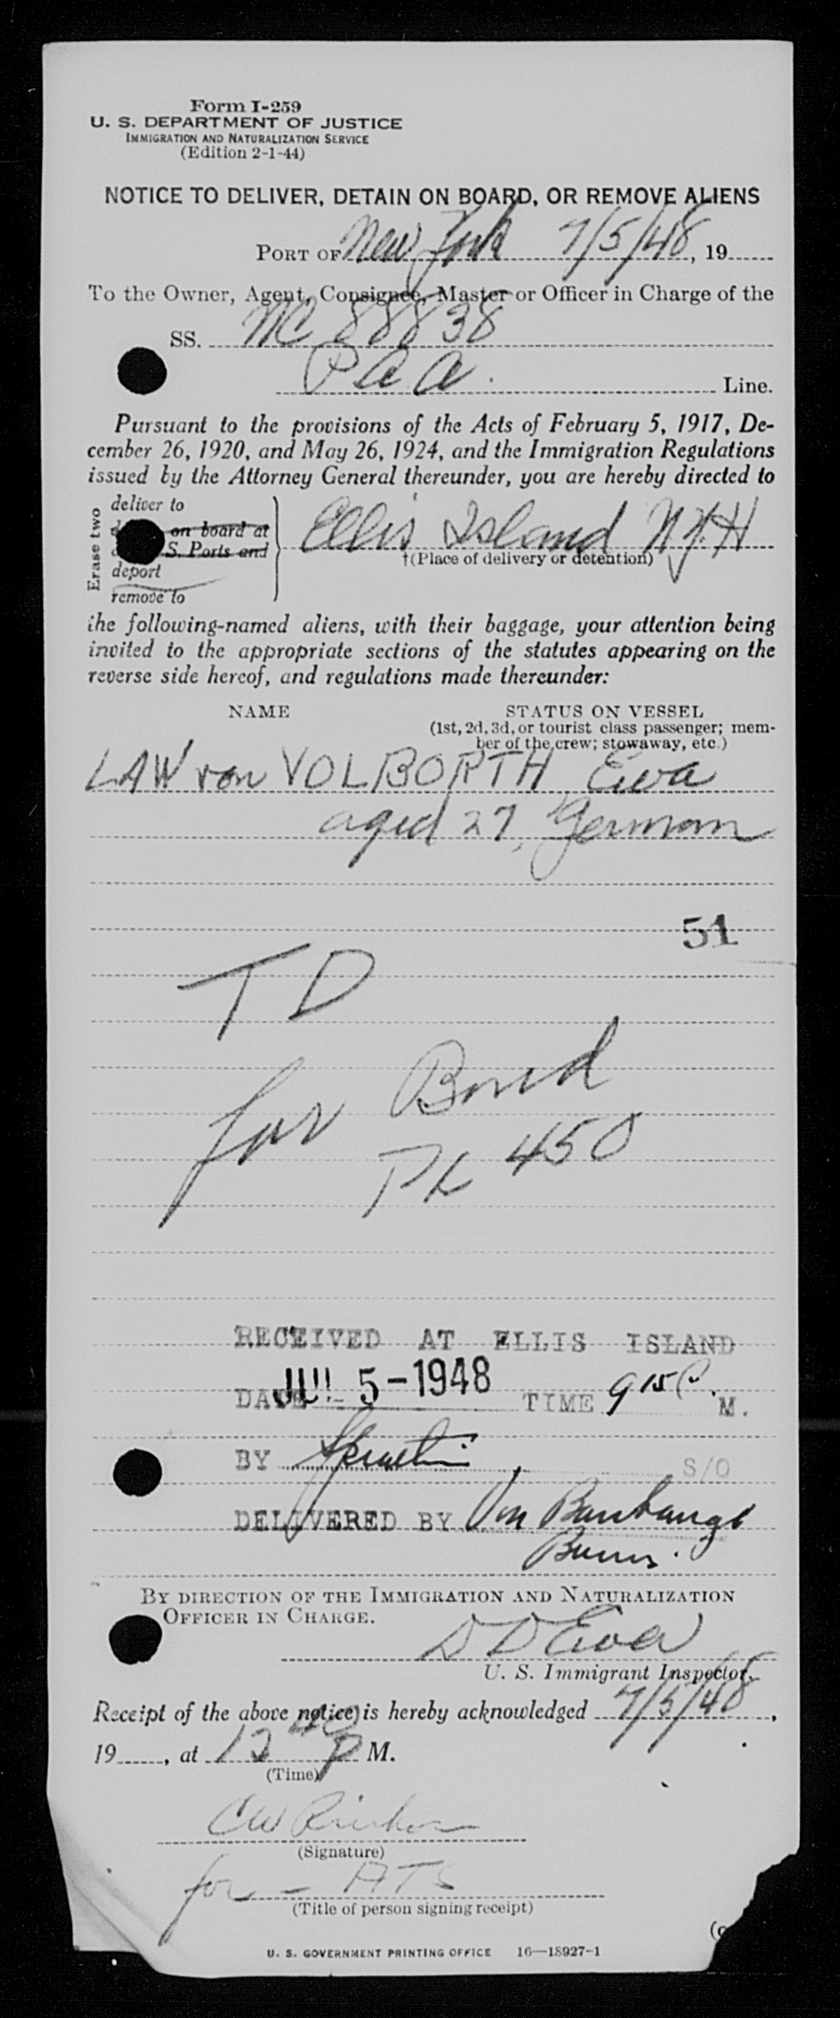 Form I-259
U. S. DEPARTMENT OF JUSTICE
IMMIGRATION AND NATURALIZATION SERVICE
(Edition 2-1-44)
NOTICE TO DELIVER, DETAIN ON BOARD, OR REMOVE ALIENS
PORT OF New York 7/5/48, 19
To the Owner, Agent, Consignee, Master or Officer in Charge of the
SS. NC 88838
P A A. Line.
Pursuant to the provisions of the Acts of February 5, 1917, De-
cember 26, 1920, and May 26, 1924, and the Immigration Regulations
issued by the Attorney General thereunder, you are hereby directed to
Erase two
deliver to
on board at
S. Ports and
deport
remove to
Ellis Island N.Y.H
†(Place of delivery or detention)
the following-named aliens, with their baggage, your attention being
invited to the appropriate sections of the statutes appearing on the
reverse side hereof, and regulations made thereunder:
NAME STATUS ON VESSEL
(1st, 2d, 3d, or tourist class passenger; mem-
ber of the crew; stowaway, etc.)
LAW von VOLBORTH Ewa
aged 27, German
51
T D
for Bond
PL 450
RECEIVED AT ELLIS ISLAND
DATE JUL 5-1948 TIME 9 15 P. M.
BY S/O
DELIVERED BY Von
Burns.
BY DIRECTION OF THE IMMIGRATION AND NATURALIZATION
OFFICER IN CHARGE.
U. S. Immigrant Inspector.
Receipt of the above notice is hereby acknowledged 7/5/48,
19, at 12 40 P M.
(Time)
(Signature)
for - ATS
(Title of person signing receipt)
U. S. GOVERNMENT PRINTING OFFICE 16—18927-1